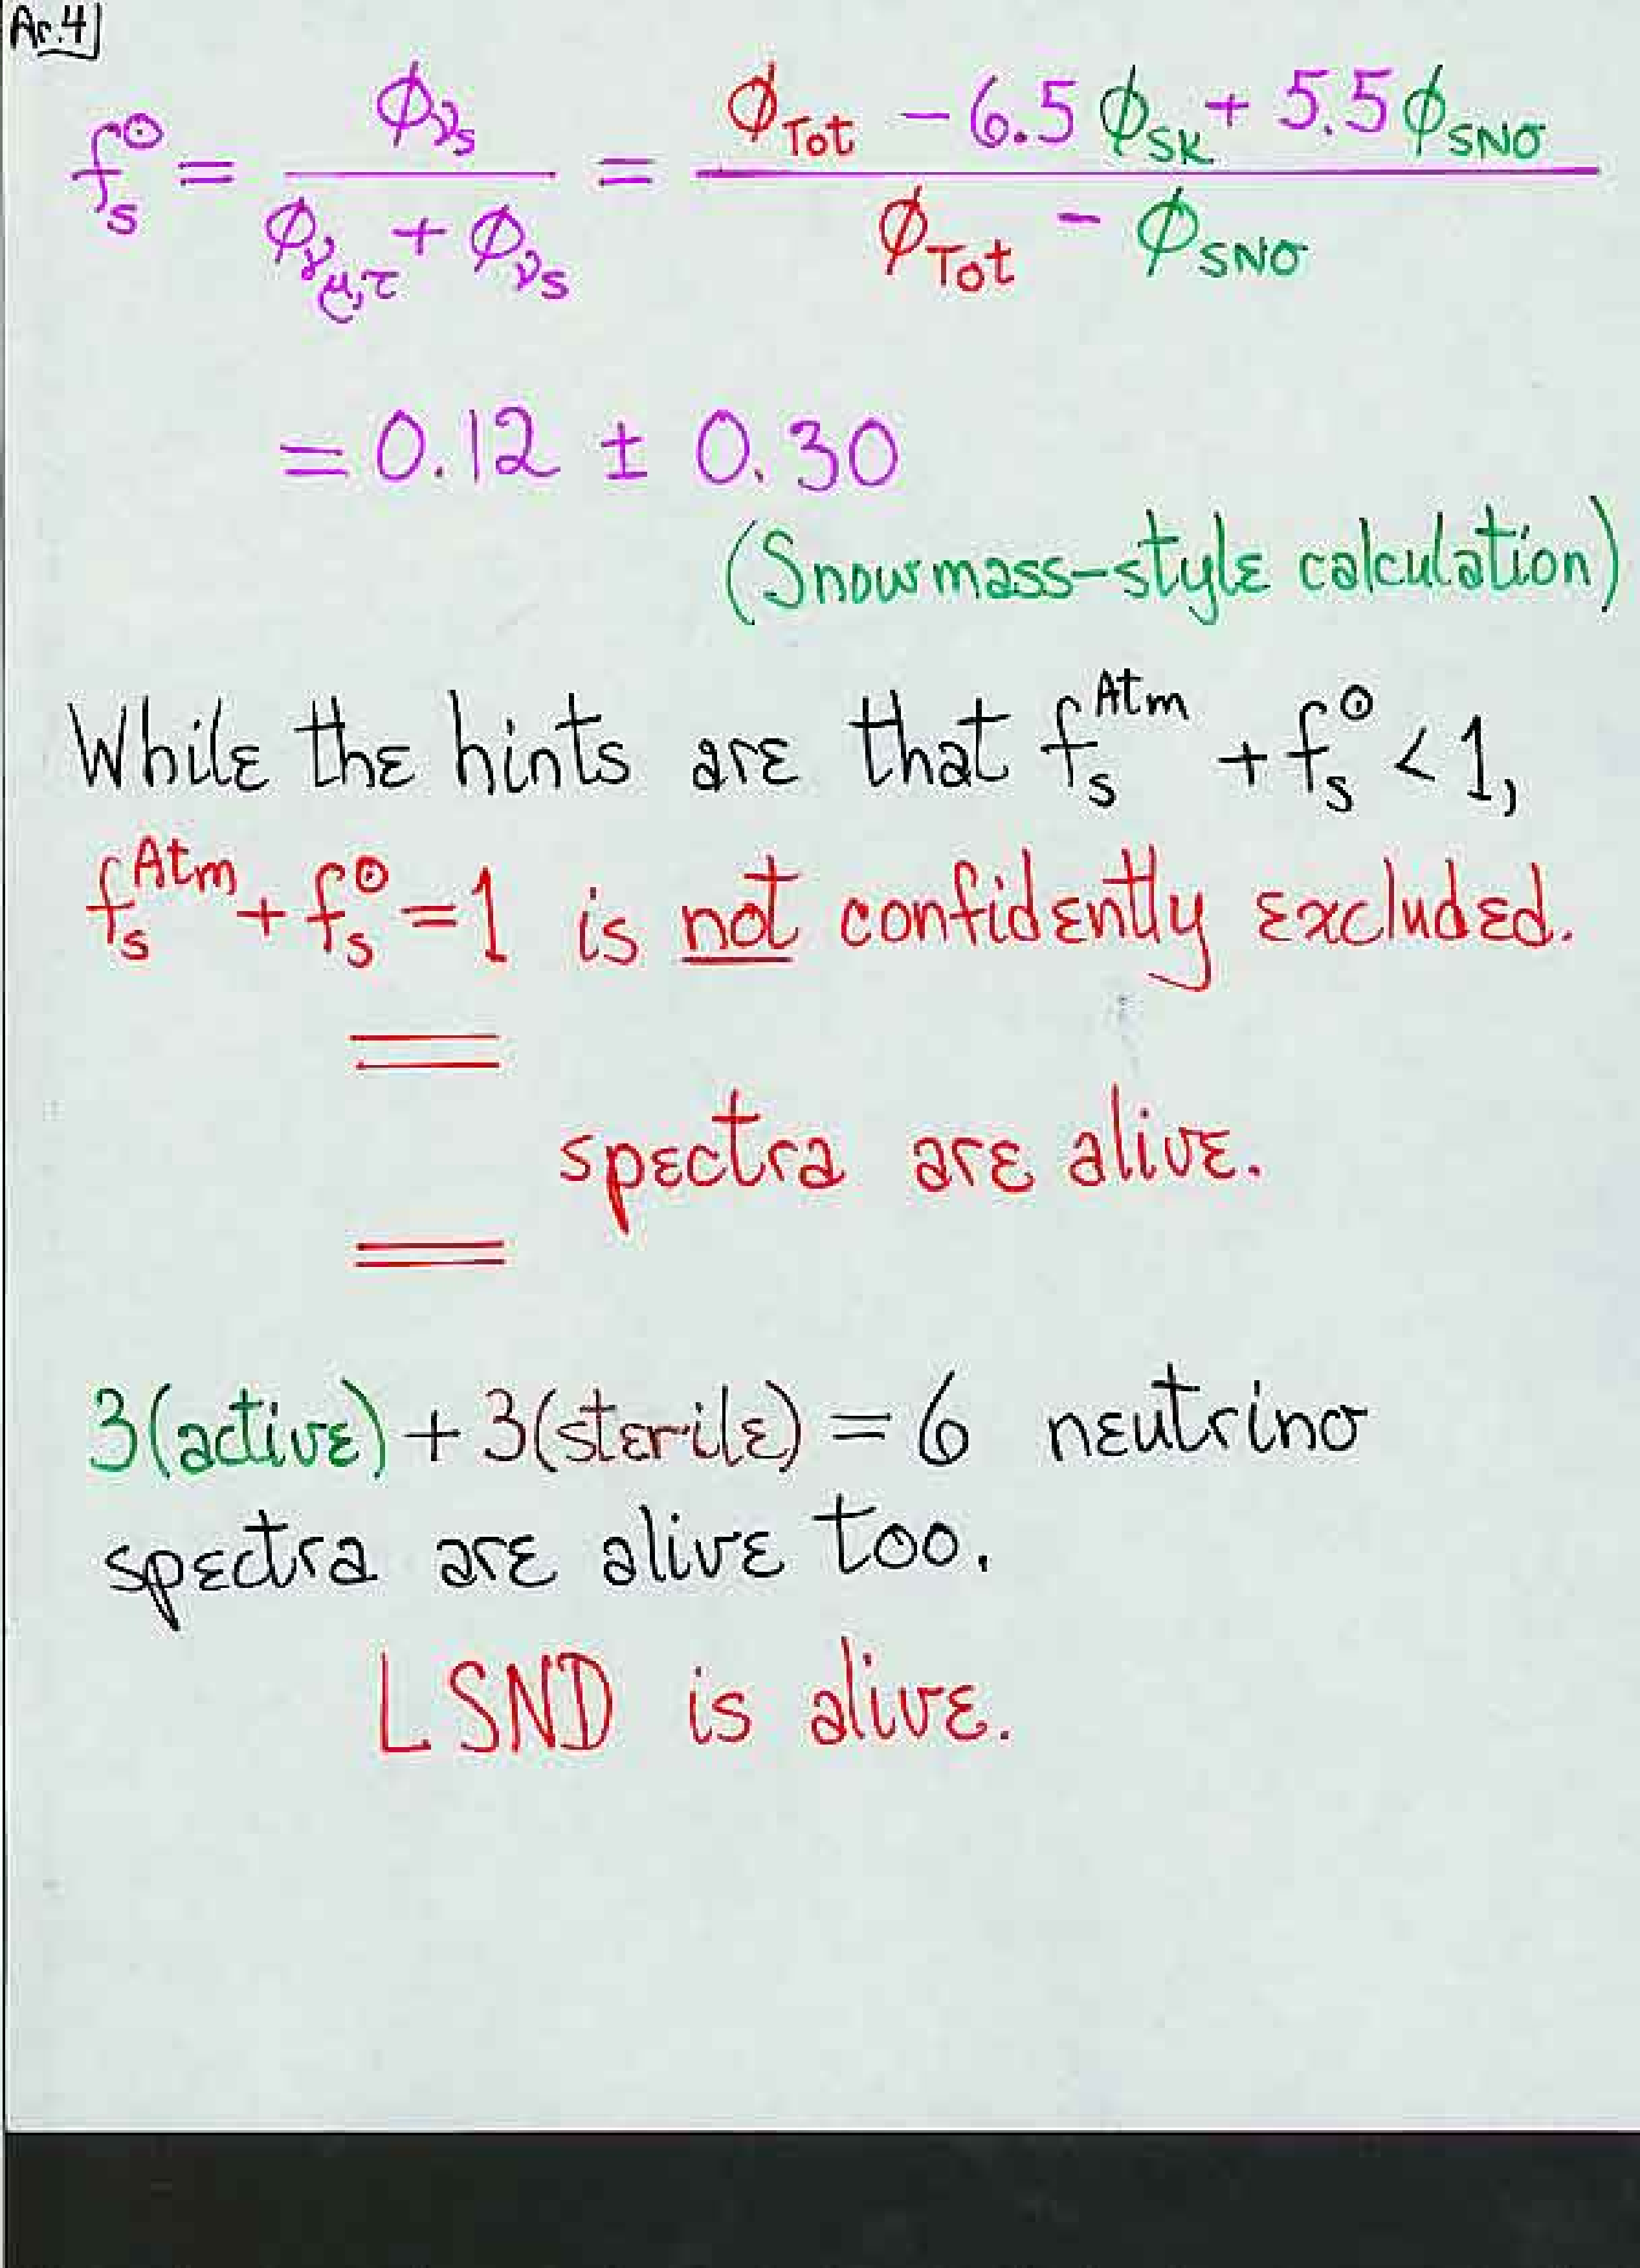 Ar.4
f_s^⊙ = ϕ_νs / (ϕ_νμ,τ + ϕ_νs) = (ϕ_Tot − 6.5 ϕ_SK + 5.5 ϕ_SNO) / (ϕ_Tot − ϕ_SNO)
= 0.12 ± 0.30
(Snowmass-style calculation)
While the hints are that f_s^Atm + f_s^⊙ < 1,
f_s^Atm + f_s^⊙ = 1 is not confidently excluded.
spectra are alive.
3(active) + 3(sterile) = 6 neutrino
spectra are alive too.
LSND is alive.